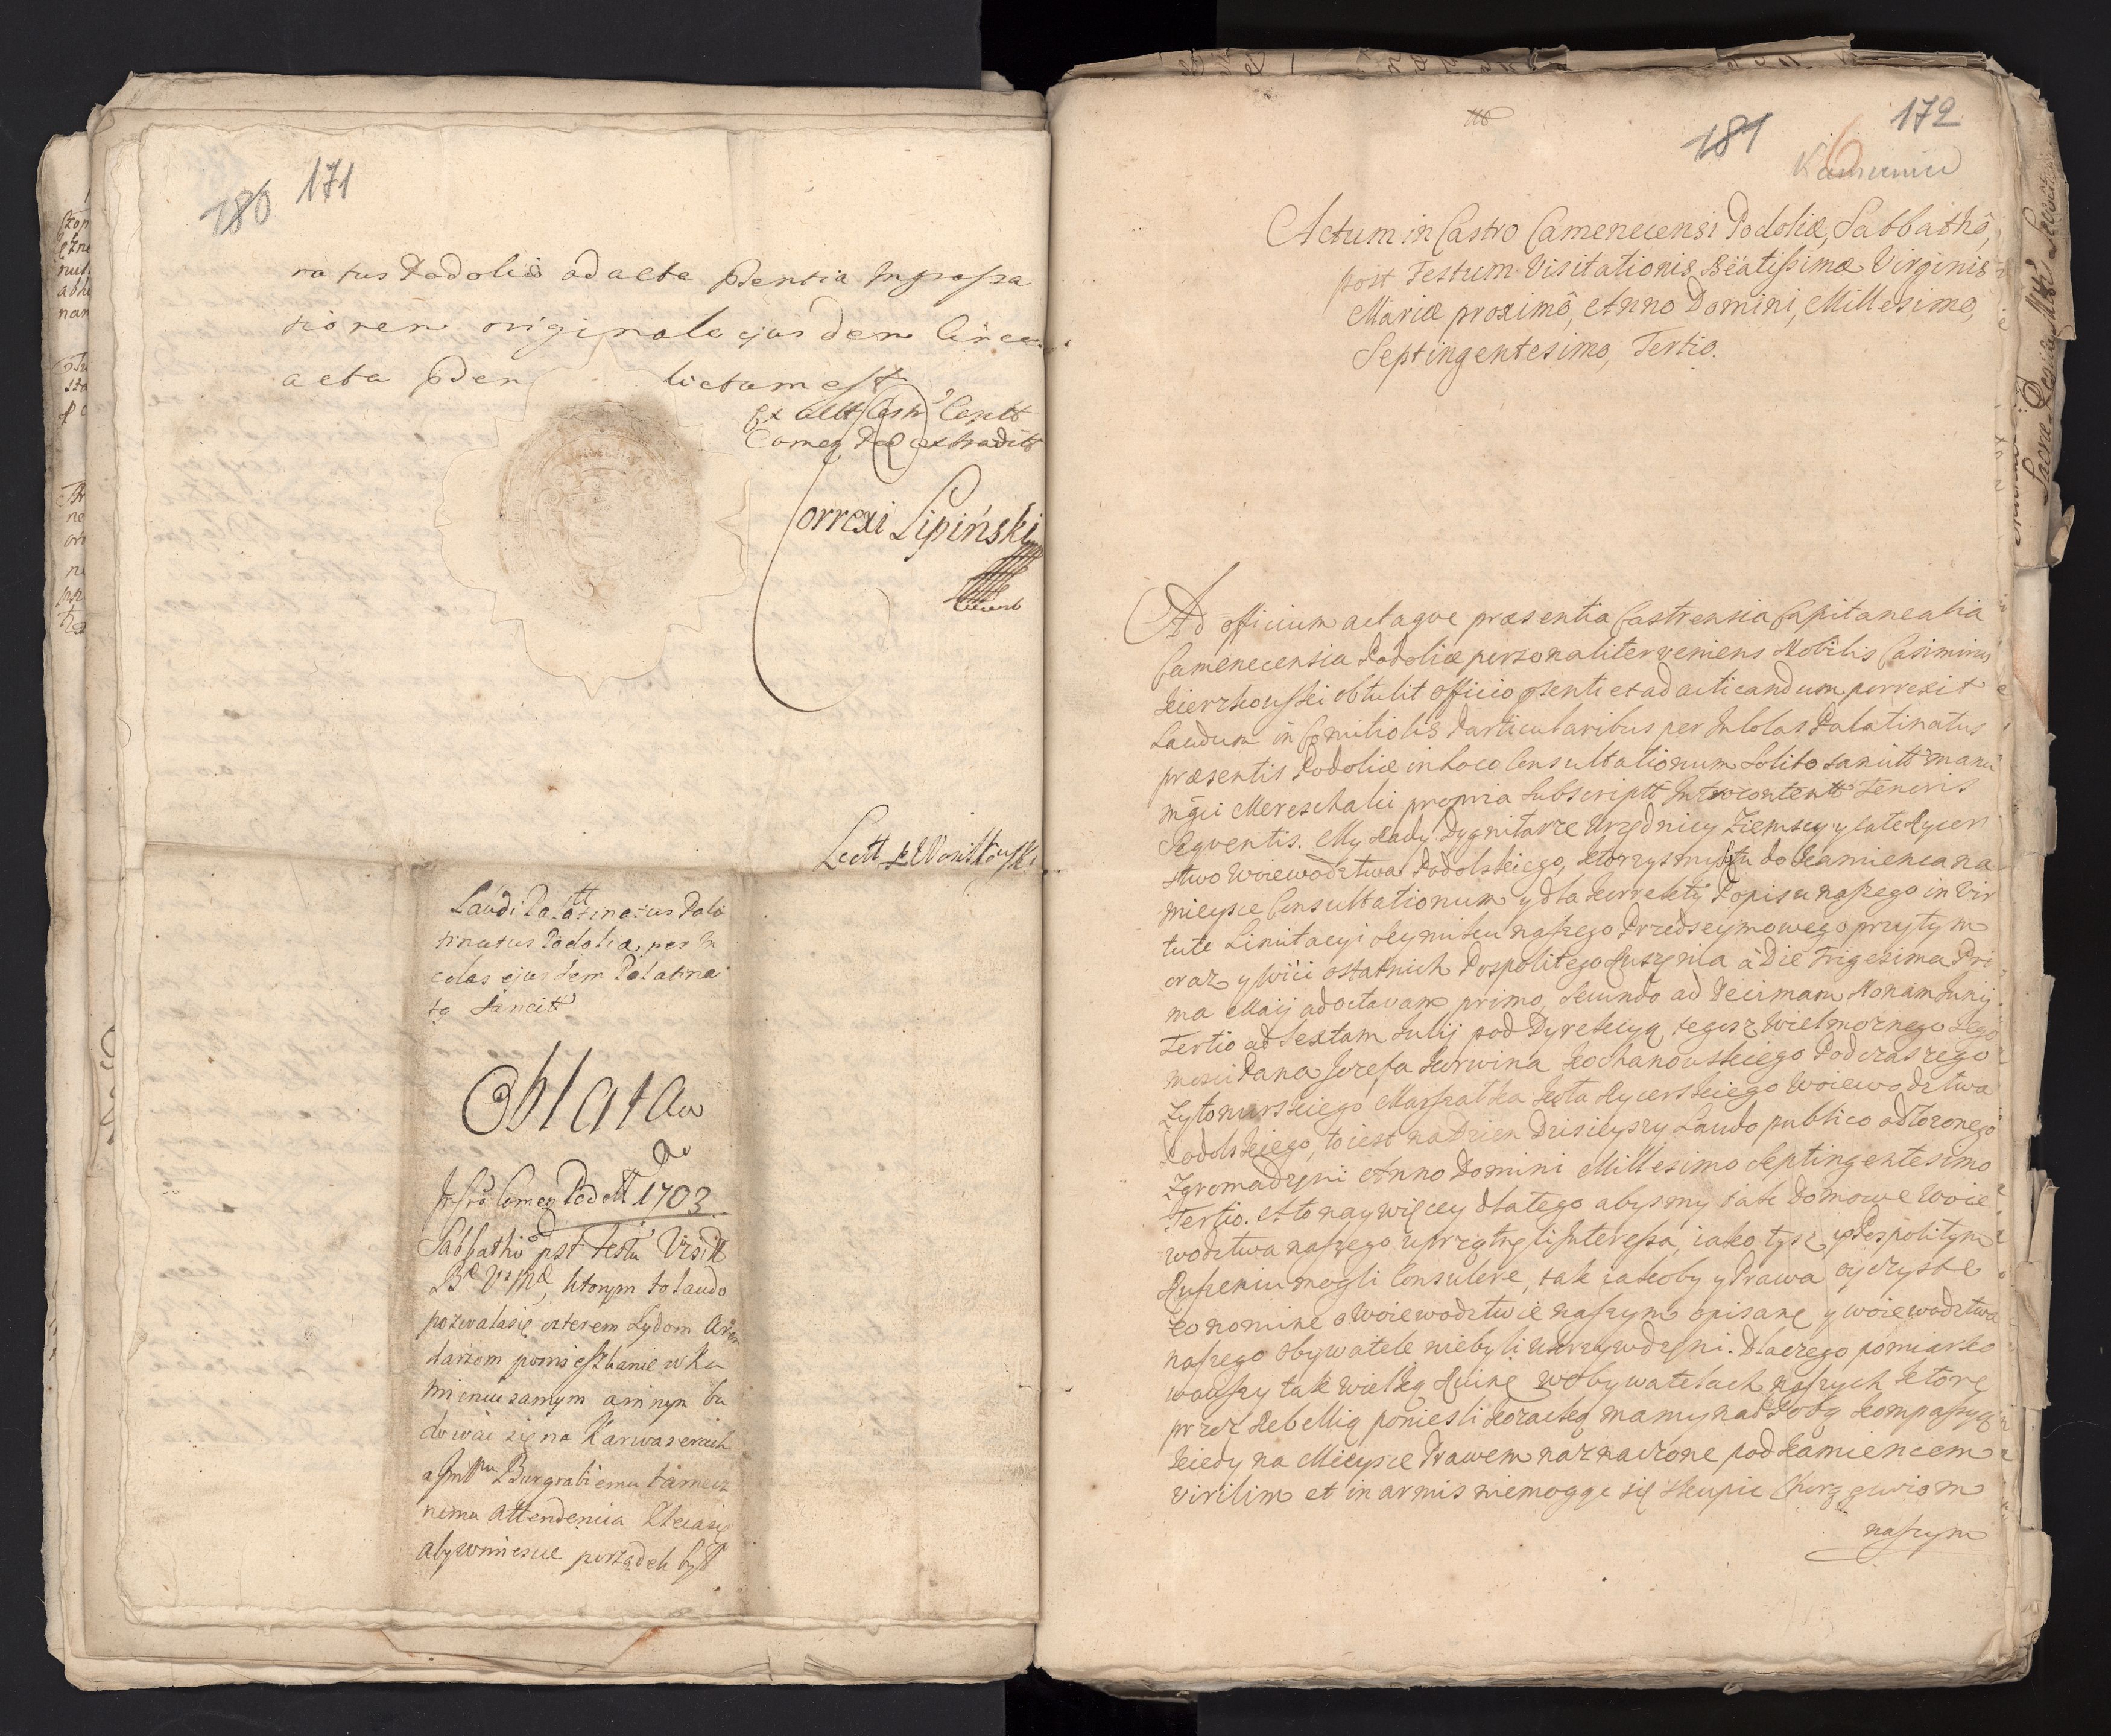 171
180
ratus Podoliæ ad acta pdentia Ingrossa
tionem originale ejusdem Circa
acta pden lictam est
Ex Actt Castr Captt
Camen Pod extradit
Correxi Lipiński
Lectt p Wasilkowski
Laudi Palattinatus Pala
tinatus Podoliæ per In
colas ejusdem Palatina
tq Sancitt
Oblata
Castro Camen Podott 1703
Sabbatho pst Festu Visitt
Bæ V: Mæ, ktorym to laudo
pozwala się czterem Zydom Aren
darzom pomięszkanie w Ka
miencu samym a innym bu
dować się na Karwaserach
a Jmpu Burgrabiemu kamie
nemu attendencia zleca się
aby w miescie porządek był
172
181
6
Kamieniec
Actum in Castro Camenecensi Podoliæ, Sabbathô,
post Festum Visitationis Beatissimæ Virginis
Mariæ proximô, Anno Domini, Millesimo,
Septingentesimo, Tertio.
Ad officium actaque præsentia Castrensia Capitanealia
Camenecensia Podoliæ personaliter veniens Nobilis Casimirus
kierzkowski obtulit officio pdenti et ad acticandum porrexit
Laudum in Comitiolis Particularibus per Incolas Palatinatus
præsentis Podoliæ in Loco Consultationum Solito sancitt manu
mgci Mareschalci propria Subscriptt Introcontentt Tenoris
Seqventis. My Rady Dygnitarze Urzędnicy Ziemscy y całe Rycer
stwo Woiewodztwa Podolskiego, ktorzysmy się tu do kamienca na
mieysce Consultationum y dla korrekty Popisu naszego in Vir
tute Limitacyi Seymiku naszego Przedseymowego przytym
oraz y wici ostatnich Pospolitego Ruszęnia â Die Trigesima Pri
ma Maij ad octavam primo, Secundo ad Decimam Nonam Junij
Tertio ad Sextam Julij pod Dyrekcyą tegosz Wielmoznego Jego
mosci Pana Jozefa Korwina kochanowskiego Podczaszego
Zytomirskiego Marszałka koła Rycerskiego Woiewodztwa
Podolskiego, to iest na Dzien Dzisieyszy Laudo publico odłozonego
Zgromadzęni Anno Domini Millesimo Septingentesimo
Tertio. A to naywięcy dlatego abysmy tak Domowe Woie
wodztwa naszego uprzątnęli Interessa, iako tysz y o Pospolitym
Ruszeniu mogli Consulere, tak iakoby y Prawa oyczyste
eo nomine o Woiewodztwie naszym opisane y woiewodztwa
naszego Obywatele niebyli ukrzywdzęni. Dlaczego pomiarko
wawszy tak wielką Ruinę w obywatelach naszych którę
przez Rebellią poniesli kozacką mamy nad Sobą kompassyą
kiedy na Mieysce Prawem naznaczone pod kamiencem
virilim et in armis niemogąc się skupic Chorągwiom
naszym